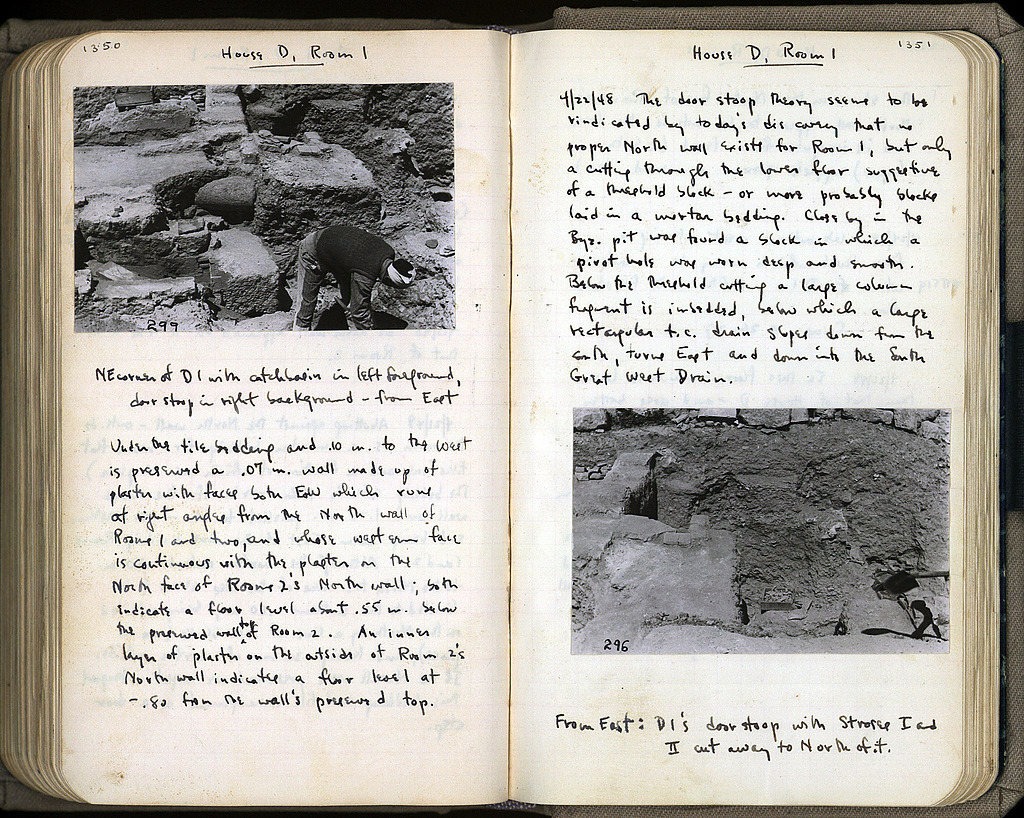 1350
House D, Room 1
299
NE corner of D1 with catchbasin in left foreground,
door stoop in right background - from East
Under the tile bedding and .10 m. to the West
is preserved a .07 m. wall made up of
plaster with faces both E+W which runs
at right angles from the North wall of
Rooms 1 and two, and whose western face
is continuous with the plaster on the
North face of Room 2's North wall; both
indicate a floor level about .55 m. below
the preserved wall top of Room 2. An inner
layer of plaster on the outside of Room 2's
North wall indicates a floor level at
-.80 from the wall's preserved top.
1351
House D, Room 1
4/22/48 The door stoop theory seems to be
vindicated by today's discovery that no
proper North wall exists for Room 1, but only
a cutting through the lower floor suggestive
of a threshold block - or more probably blocks
laid in a mortar bedding. Close by in the
Byz. pit was found a block in which a
pivot hole was worn deep and smooth.
Below the threshold cutting a large column
fragment is imbedded, below which a large
rectangular t.c. drain slopes down from the
south, turns East and down into the South
Great West Drain.
296
From East: D1's door stoop with Stroses I and
II cut away to North of it.